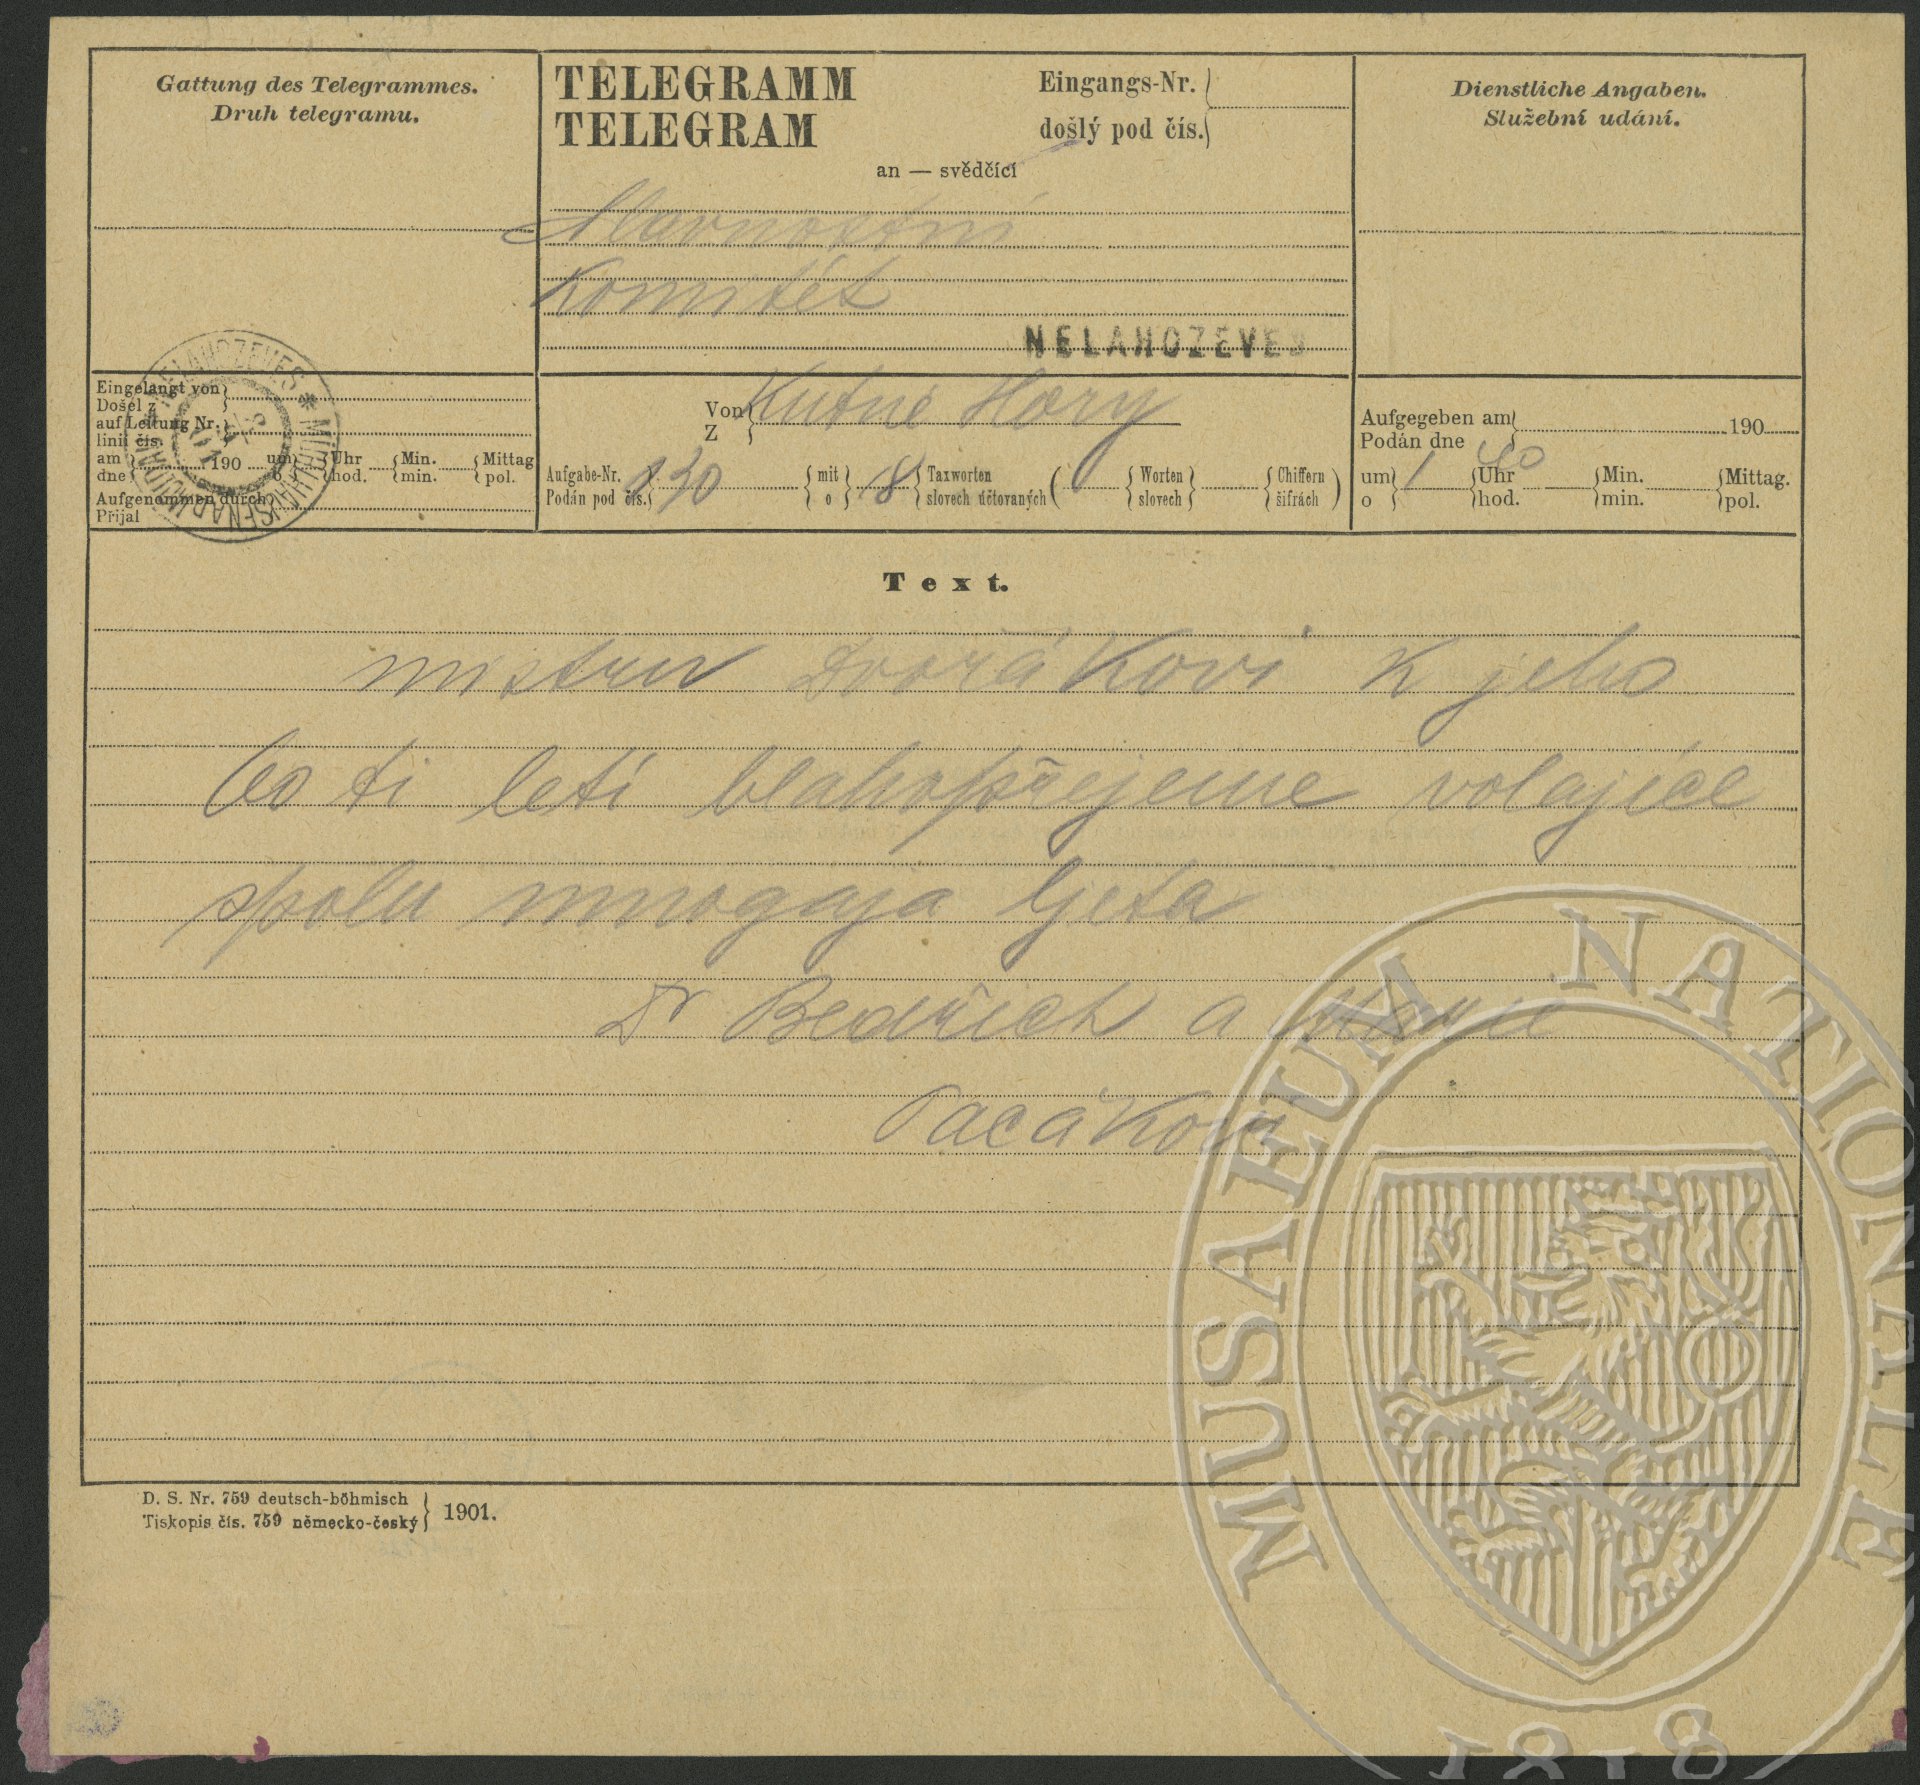 Gattung des Telegrammes.
Druh telegramu.
TELEGRAMM
TELEGRAM
Eingangs-Nr.
došlý pod čís.
an — svědčící
Dienstliche Angaben.
Služební udání.
Slavnostní
Komitét
NELAHOZEVES
Eingelangt von
Došel z
auf Leitung Nr.
linii čis.
am 190 um Uhr Min. Mittag
dne o hod. min. pol.
Aufgenommen durch
Přijal
Von Kutné Hory
Z
Aufgabe-Nr. 130 mit 18 Taxworten ( Worten Chiffern )
Podán pod čís. o slovech účtovaných slovech šifrách
Aufgegeben am 190
Podán dne
um 1 Uhr 40 Min. Mittag.
o hod. min. pol.
Text.
mistru Dvořákovi k jeho
60 ti letí blahopřejeme volajíce
spolu mnogaja ljeta
Dr Bedřich a
Pacákovi
D. S. Nr. 759 deutsch-böhmisch
Tiskopis čís. 759 německo-český
1901.
MUSAEUM NATIONALE
1818